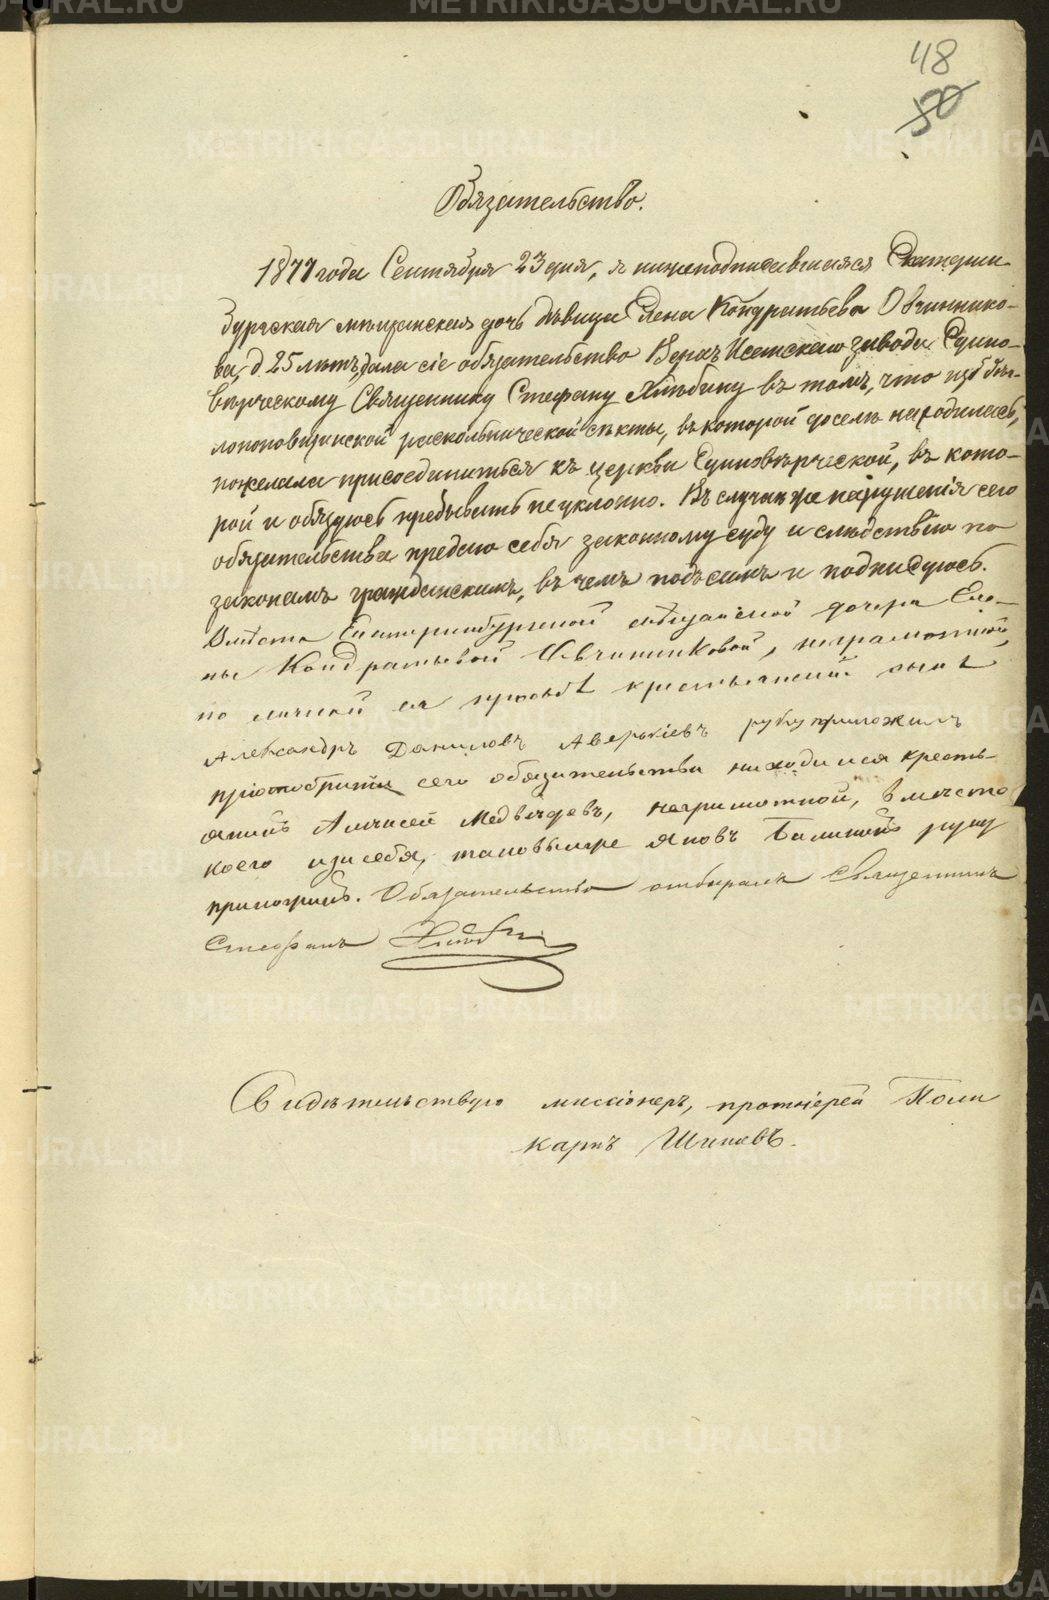 48
50
Обязательство.
1877 года Сентября 23 дня, я нижеподписавшаяся Екатерин-
бургская мѣщанская дочь дѣвица Елена Кондратьева Овчиннико-
ва, 25 лѣтъ, дала сіе обязательство Верхъ Исетскаго завода Едино-
вѣрческому Священнику Стефану Хлѣбину въ томъ, что изъ бѣг-
лопоповщинской раскольнической сѣкты, въ которой доселѣ находилась,
пожелала присоединиться къ церкви Единовѣрческой, въ кото-
рой и обязуюсь пребывать неуклонно. Въ случаѣ же нарушенія сего
обязательства предаю себя законному суду и слѣдствію по
законамъ гражданскимъ, въ чемъ подъ симъ и подписуюсь.
Вмѣсто Екатеринбургской мѣщанской дочери Еле-
ны Кондратьевой Овчинниковой, неграмотной,
по личной ея просьбѣ крестьянскій сынъ
Александръ Даниловъ Аверкіевъ руку приложилъ
При отобраніи сего обязательства находился кресть-
янинъ Алексей Медвѣдевъ, неграмотной, вместо
коего и за себя, таковый же Яковъ руку
приложилъ. Обязательство отбиралъ Священникъ
Стефанъ Хлѣбинъ
Свидѣтельствую миссіонеръ, протоіерей Поли
карпъ
METRIKI.GASO-URAL.RU